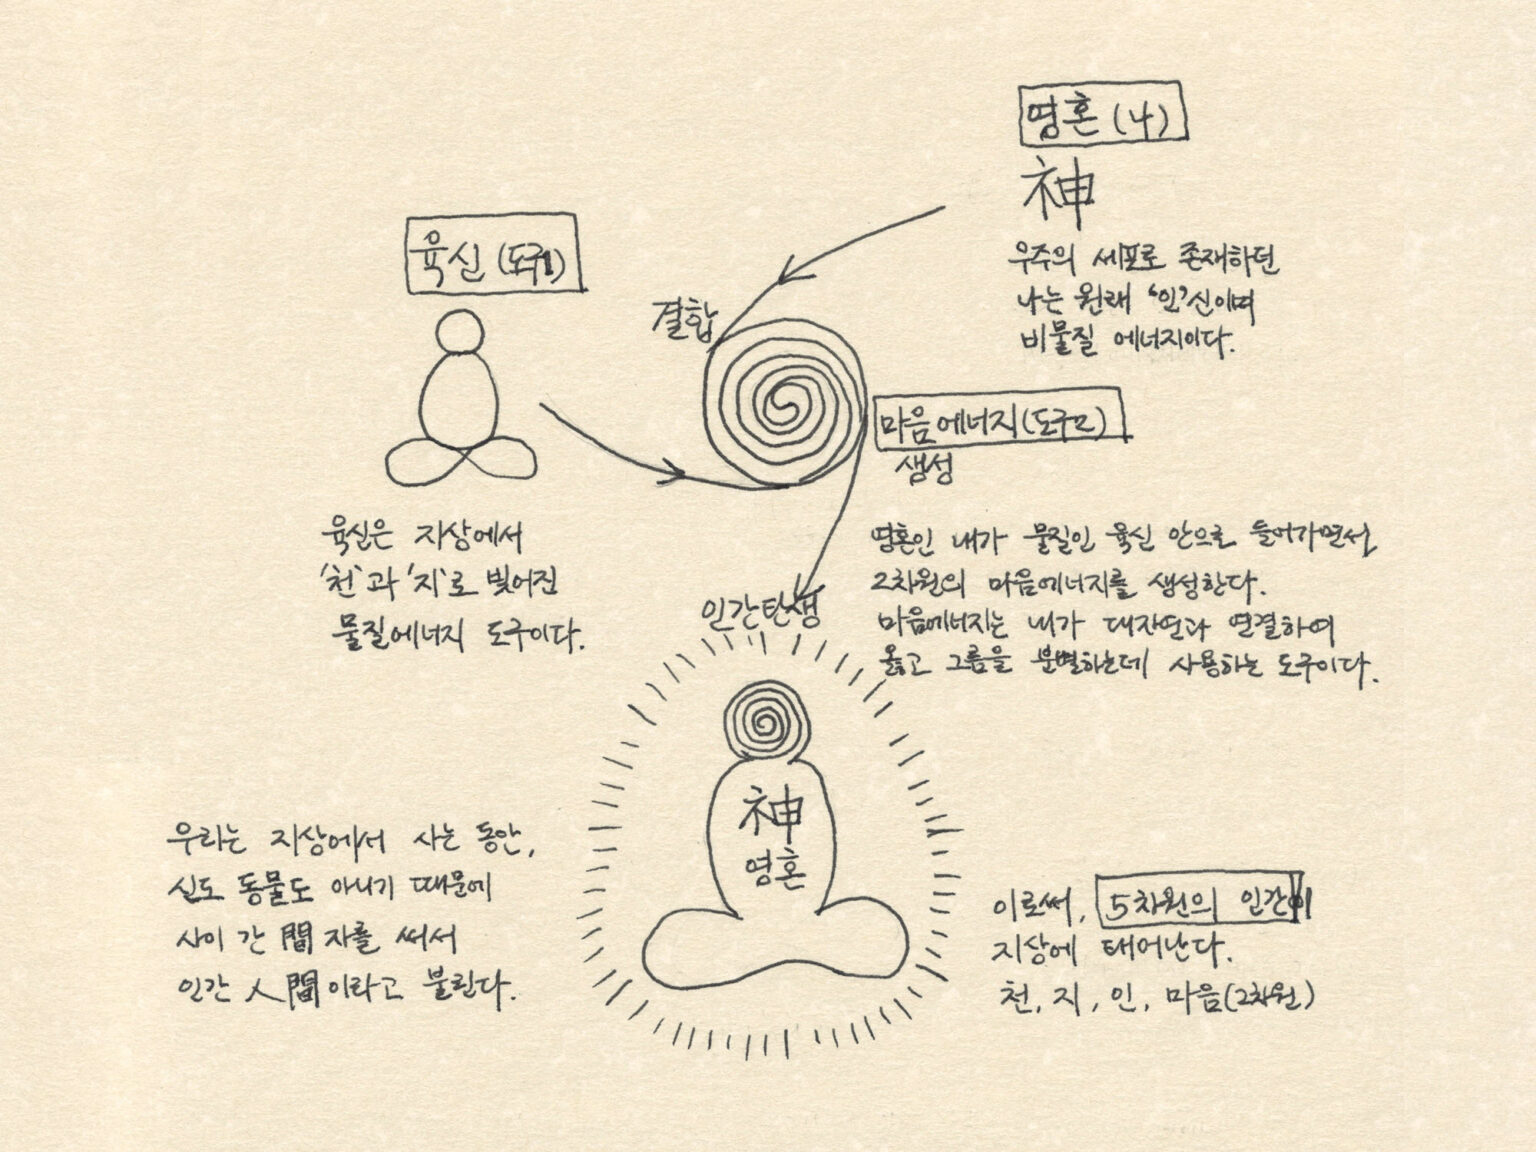 영혼(나)
神
우주의 세포로 존재하던
나는 원래 '인'신이며
비물질 에너지이다.
육신(도구1)
결합
마음에너지(도구2)
생성
육신은 지상에서
'천'과 '지'로 빚어진
물질에너지 도구이다.
영혼인 내가 물질인 육신 안으로 들어가면서,
2차원의 마음에너지를 생성한다.
마음에너지는 내가 대자연과 연결하여
옳고 그름을 분별하는데 사용하는 도구이다.
인간탄생
神
영혼
우리는 지상에서 사는 동안,
신도 동물도 아니기 때문에
사이 간 間 자를 써서
인간 人間이라고 불린다.
이로써, 5차원의 인간이
지상에 태어난다.
천, 지, 인, 마음(2차원)